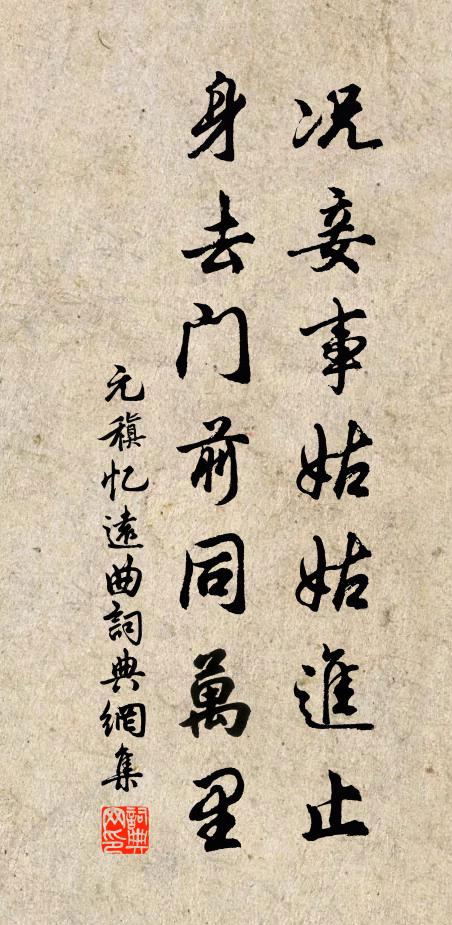 况妾事姑姑進止
身去门前同萬里
元稹忆遠曲詞典網集
詞典网印